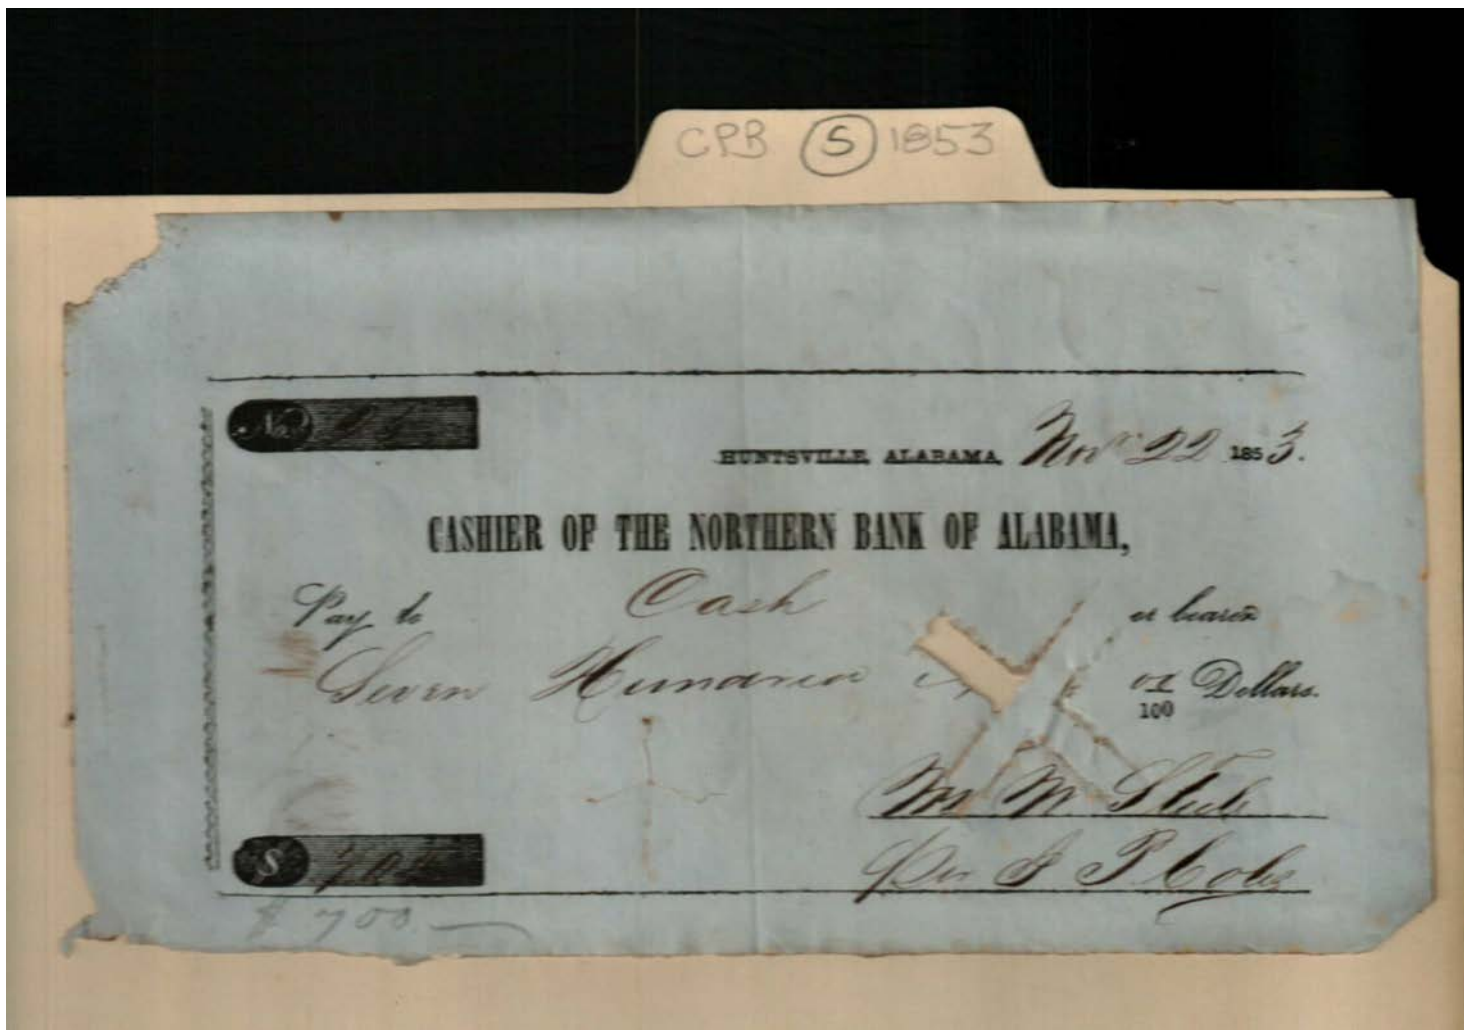 CPB S 1853
No
HUNTSVILLE, ALABAMA, Novr 22 1853.
CASHIER OF THE NORTHERN BANK OF ALABAMA,
Pay to Cash or bearer
Seven Hundred 00/100 Dollars.
$
$ 700